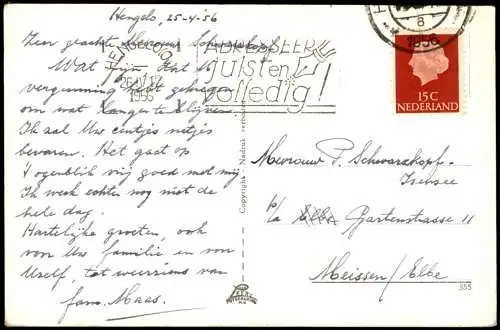 Hengelo, 25-4-'56
Zeer geachte Mevrouw Schwarzkopf.
Wat fijn, dat U
vergunning hebt gekregen
om wat langer te blijven
Ik zal Uw centjes netjes
bewaren. Het gaat op
't ogenblik vrij goed met mij
Ik werk echter nog niet de
hele dag.
Hartelijke groeten, ook
van Uw familie en van
Uzelf, tot weerziens van
fam. Maas.
HENGELO
1956
ADRESSEER
juist en
volledig!
8
1956
15C
NEDERLAND
Copyright - Nadruk verboden
Mevrouw P. Schwarzkopf-
Isensee
p/a Elbe Gartenstrasse 11
Meissen/Elbe
555